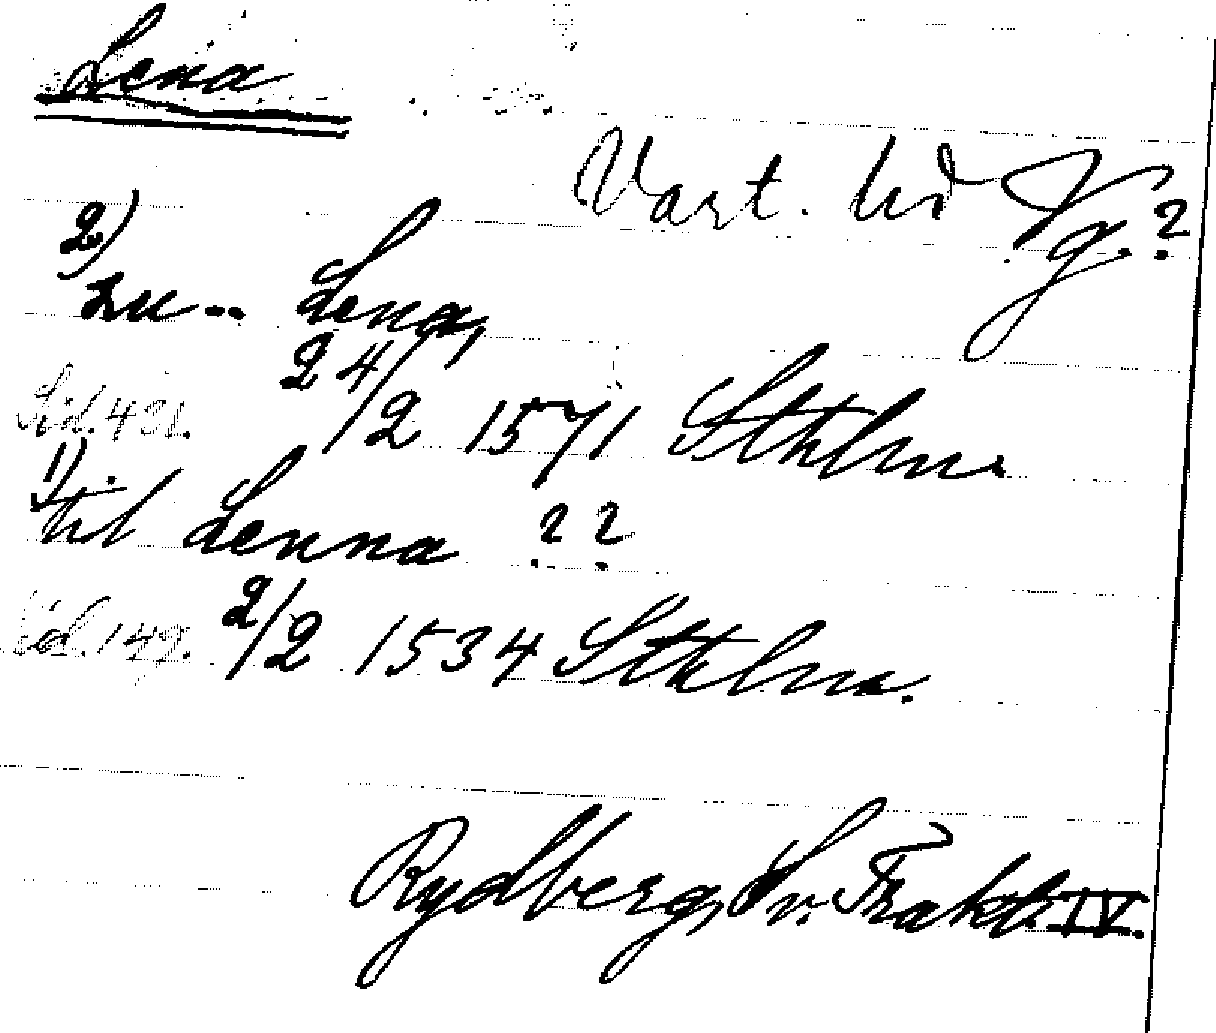 Lena
Vart. hd Vg.?
2)
zu -- Lena,
24/2 1571 Sthlm.
Sid. 421.
1)
til Lenna ??
Sid. 149. 2/2 1534 Sthlm.
Rydberg, Sv. Trakt. IV.